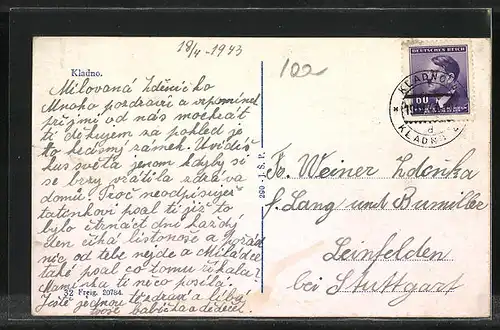 18/4 - 1943
Kladno.
Milovaná Zděničko
Mnoho pozdravů a vzpomínek
přijmi od nás mockrát
ti děkujem za pohled je
to hezkny zámek. Uvidíš
kus světa jenom kdyby si
se brzy vrátila zdráva
domů. Proč neodpisuješ
tatenkovi psal ti již to
bylo čtrnáct dní každý
den čeká listonoše a pořád
nic od tebe nejde a Miládce
také psal co tomu říkala
maminka ti něco posílá.
Ještě jednou tě zdraví a líbá
tvoje babička a dědeček
32 Freig. 20784.
290 - J. Š. P.
122
DEUTSCHES REICH
60
KLADNO
d
KLADNO
Fr. Weiner Zdeňka
f. Lang und Bumiller
Leinfelden
bei Stuttgart